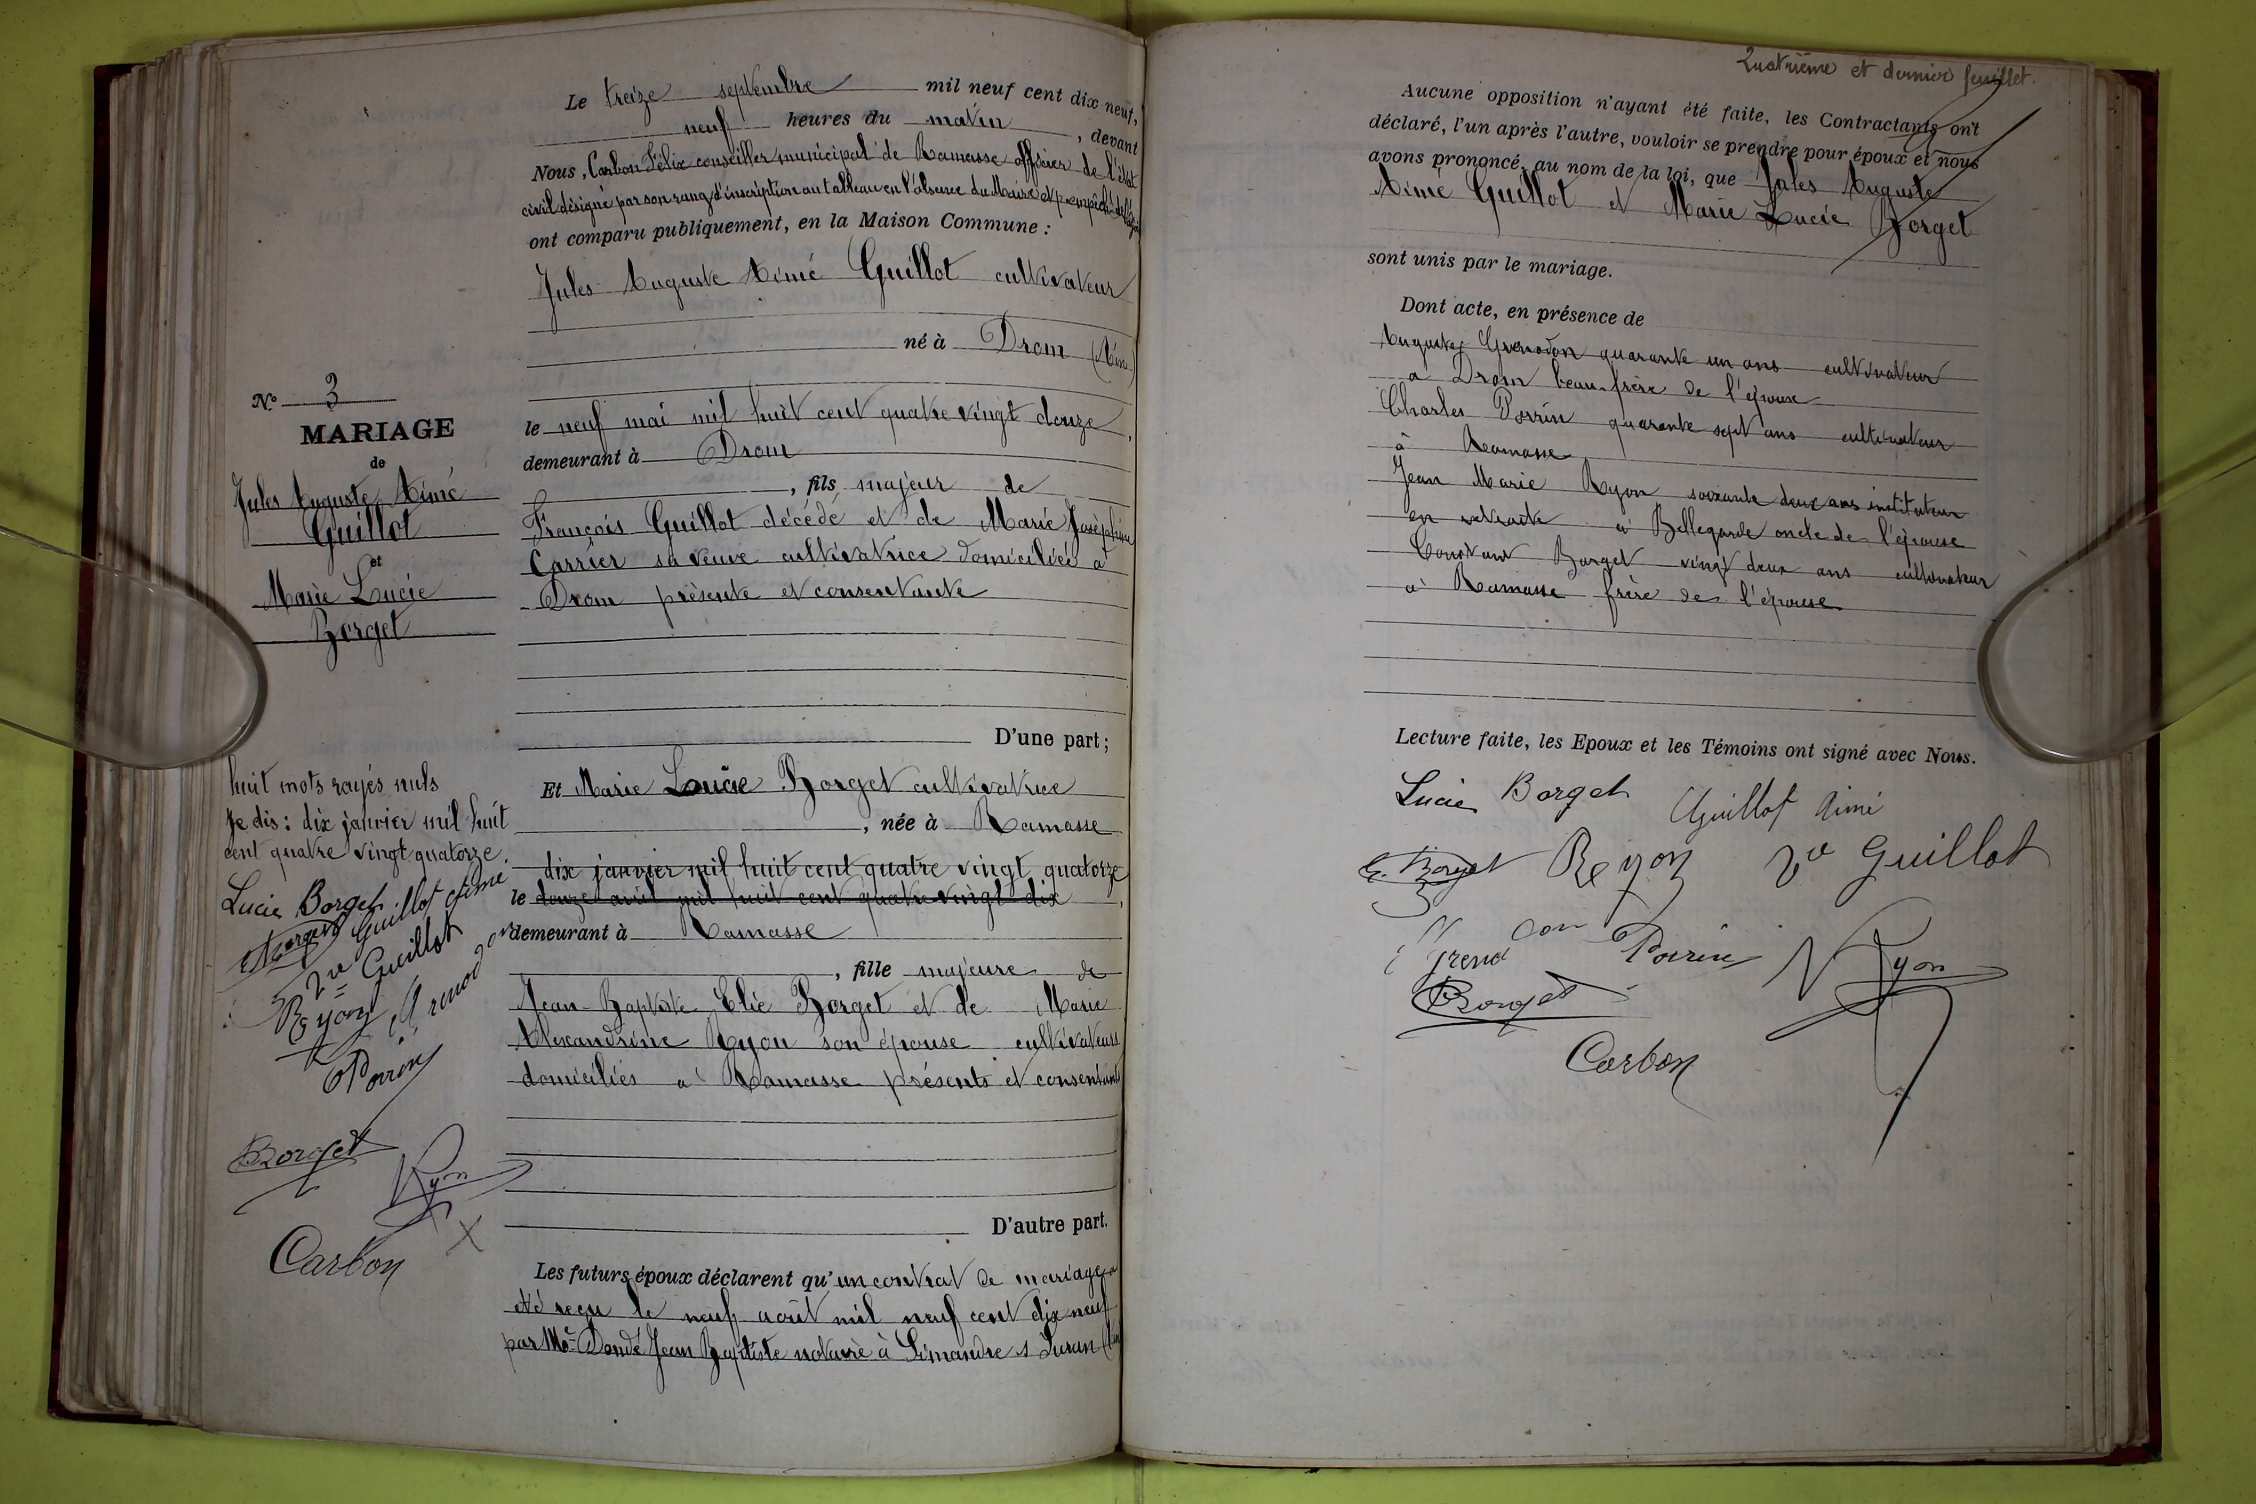 Le treize septembre mil neuf cent dix neuf,
neuf heures du matin, devant
Nous, Carbon Félix conseiller municipal de Ramasse officier de l'état
civil désigné par son rang d'inscription au tableau en l'absence du Maire et
ont comparu publiquement, en la Maison Commune :
Jules Auguste Aimé Guillot cultivateur
né à Drom (Ain)
le neuf mai mil huit cent quatre vingt douze,
demeurant à Drom
, fils majeur de
François Guillot décédé et de Marie Joséphine
Carrier sa veuve cultivatrice domiciliée à
Drom présente et consentante
D'une part;
Et Marie Lucie Borget cultivatrice
, née à Ramasse
dix janvier mil huit cent quatre vingt quatorze
le douze avril mil huit cent quatre vingt dix,
demeurant à Ramasse
, fille majeure de
Jean-Baptiste Elie Borget et de Marie
Alexandrine Ryon son épouse cultivateurs
domiciliés à Ramasse présents et consentants
D'autre part.
Les futurs époux déclarent qu'un contrat de mariage a
été reçu le neuf août mil neuf cent dix neuf
par Me Dondé Jean Baptiste notaire à Simandre s Suran (Ain
No 3
MARIAGE
de
Jules Auguste Aimé
Guillot
et
Marie Lucie
Borget
huit mots rayés nuls
Je dis : dix janvier mil huit
cent quatre vingt quatorze.
Lucie Borget
Guillot Aimé
Borget
Vve Guillot
Ryon
Grenodon
Perrin
Borget
Ryon
X
Carbon
Quatrième et dernier feuillet.
Aucune opposition n'ayant été faite, les Contractants ont
déclaré, l'un après l'autre, vouloir se prendre pour époux et nous
avons prononcé, au nom de la loi, que Jules Auguste
Aimé Guillot et Marie Lucie Borget
sont unis par le mariage.
Dont acte, en présence de
Auguste Grenodon quarante un ans cultivateur
à Drom beau-frère de l'époux
Charles Perrin quarante sept ans cultivateur
à Ramasse
Jean Marie Ryon soixante deux ans instituteur
en retraite à Bellegarde oncle de l'épouse
Constant Borget vingt deux ans cultivateur
à Ramasse frère de l'épouse
Lecture faite, les Epoux et les Témoins ont signé avec Nous.
Lucie Borget
Guillot Aimé
E. Borget
Ryon
Vve Guillot
Grenodon
Perrin
Ryon
Borget
Carbon